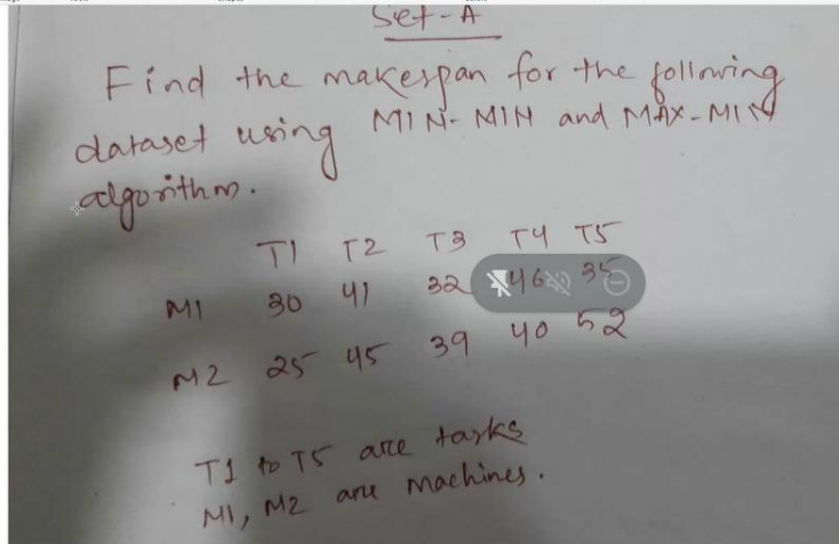 Set-A
Find the makespan for the following
dataset using MIN-MIN and MAX-MIN
algorithm.
T1 T2 T3 T4 T5
M1 30 41 32 46 35
M2 25 45 39 40 52
T1 to T5 are tasks
M1, M2 are machines.